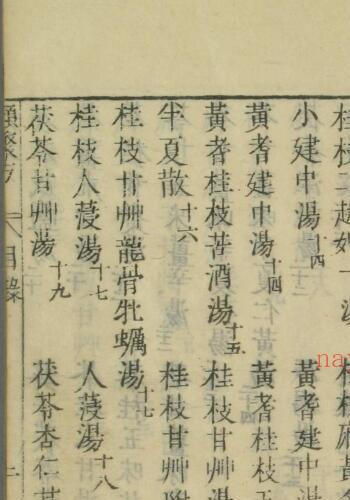 桂枝二越婢一湯 桂枝
小建中湯十四 黃耆建中湯
黃耆建中湯十四 黃耆桂枝五
黃耆桂枝苦酒湯十五 桂枝甘艸
半夏散十六 桂枝甘艸附
桂枝甘艸龍骨牡蠣湯十七
桂枝人薓湯十七 人薓湯十八
茯苓甘艸湯十九 茯苓杏仁甘
類聚方 目錄